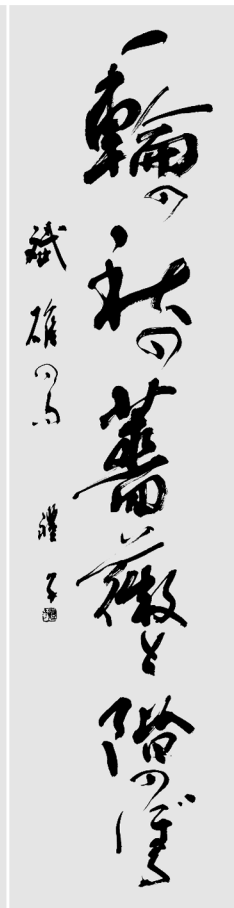 一輪の秋の薔薇と階のぼる
斌雄の句 禮子